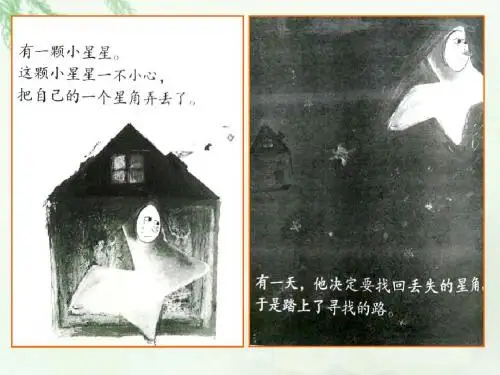 有一颗小星星。
这颗小星星一不小心，
把自己的一个星角弄丢了。
有一天，他决定要找回丢失的星角，
于是踏上了寻找的路。